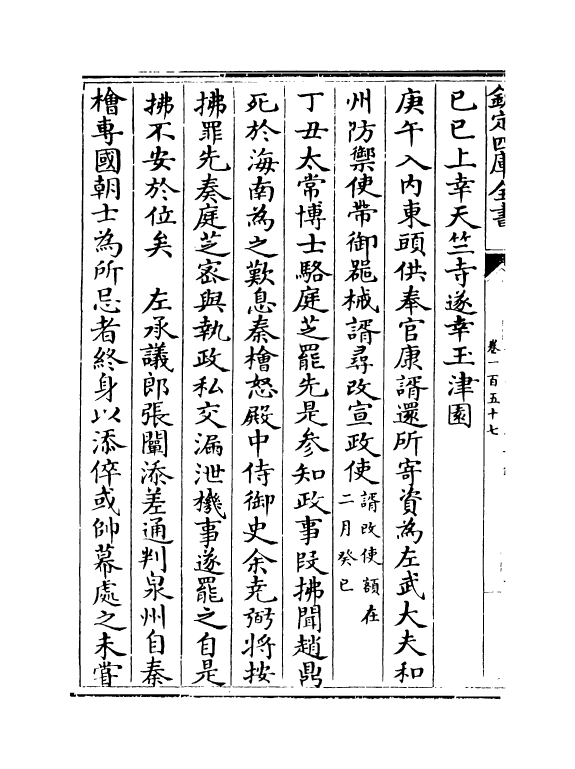 欽定四庫全書
卷一百五十七
己巳上幸天竺寺遂幸玉津園
庚午入内東頭供奉官康諝還所寄資為左武大夫和
州防禦使帶御器械諝尋改宣政使諝改使額在二月癸巳
丁丑太常博士駱庭芝罷先是參知政事段拂聞趙鼎
死於海南為之歎息秦檜怒殿中侍御史余堯弼將按
拂罪先奏庭芝宻與執政私交漏泄機事遂罷之自是
拂不安於位矣 左承議郎張闡添差通判泉州自秦
檜專國朝士為所忌者終身以添倅或帥幕處之未甞